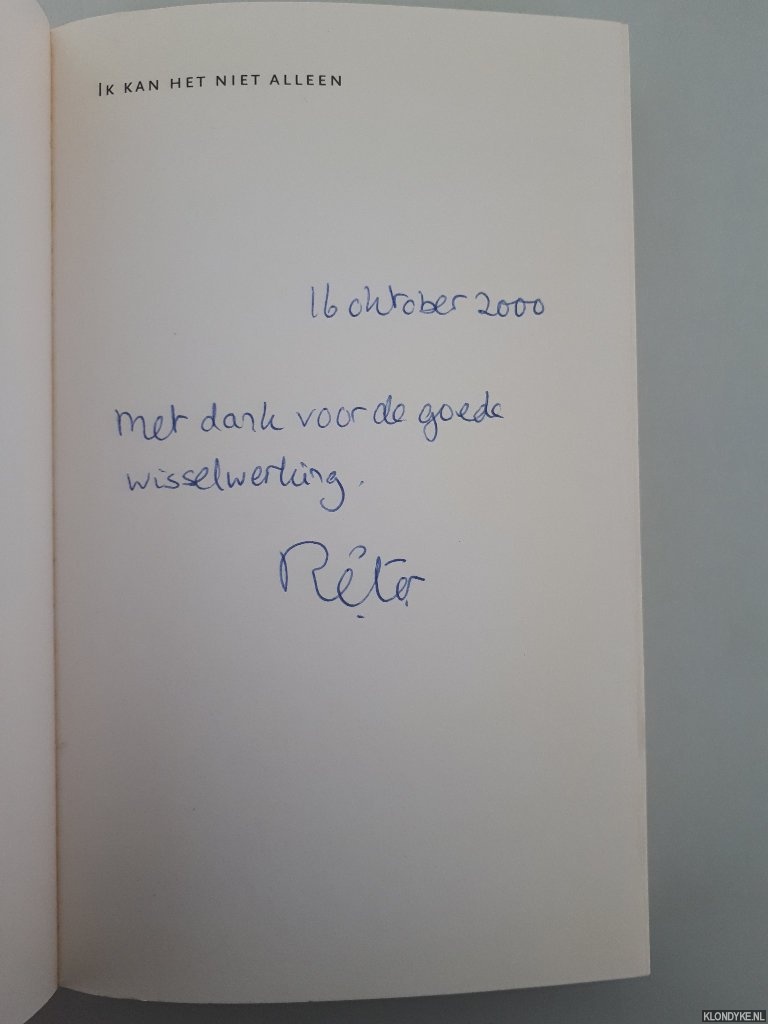 IK KAN HET NIET ALLEEN
16 oktober 2000
Met dank voor de goede
wisselwerking.
KLONDYKE.NL